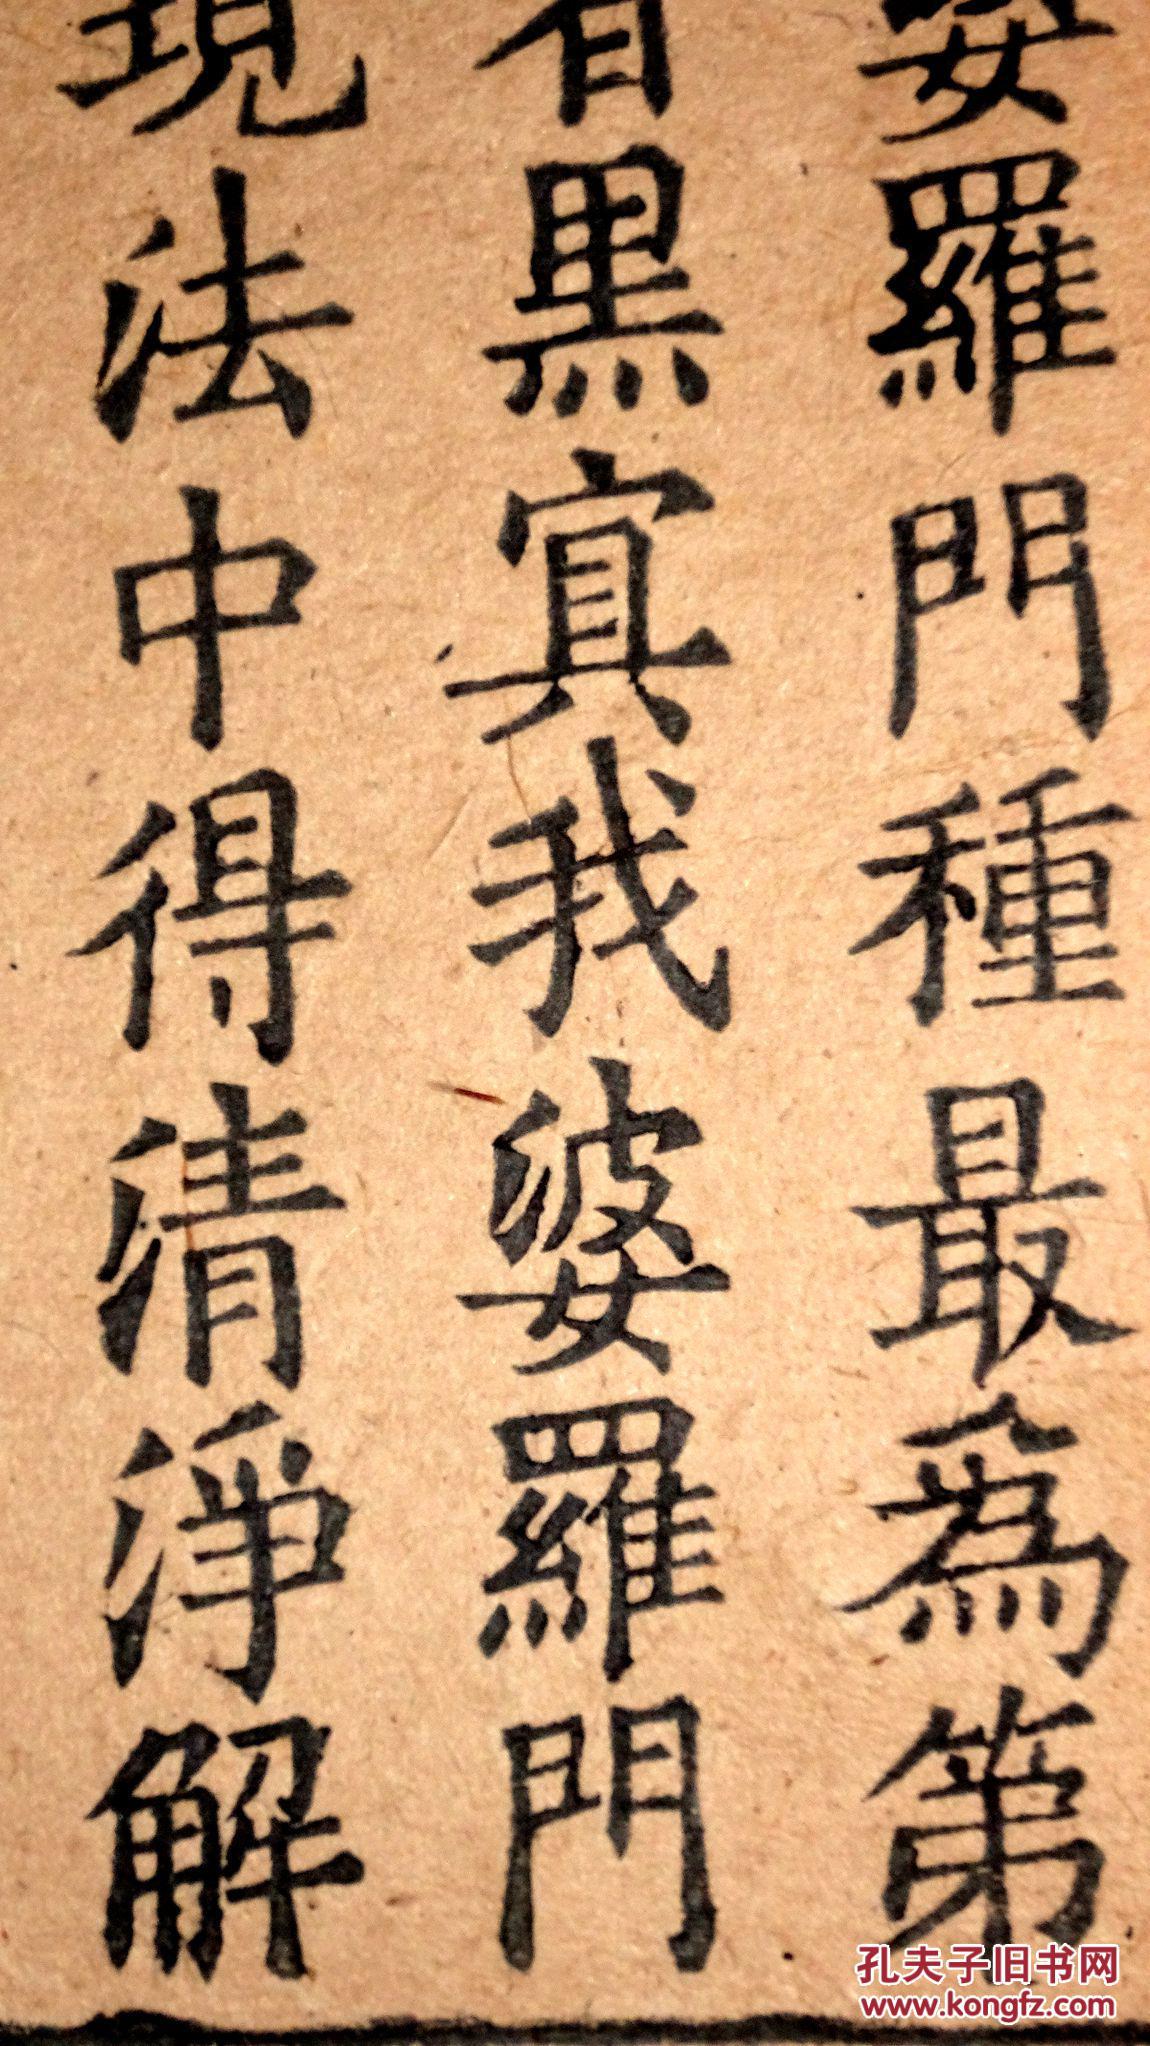 婆羅門種最為第
有黑冥我婆羅門
現法中得清淨解
孔夫子旧书网
www.kongfz.com